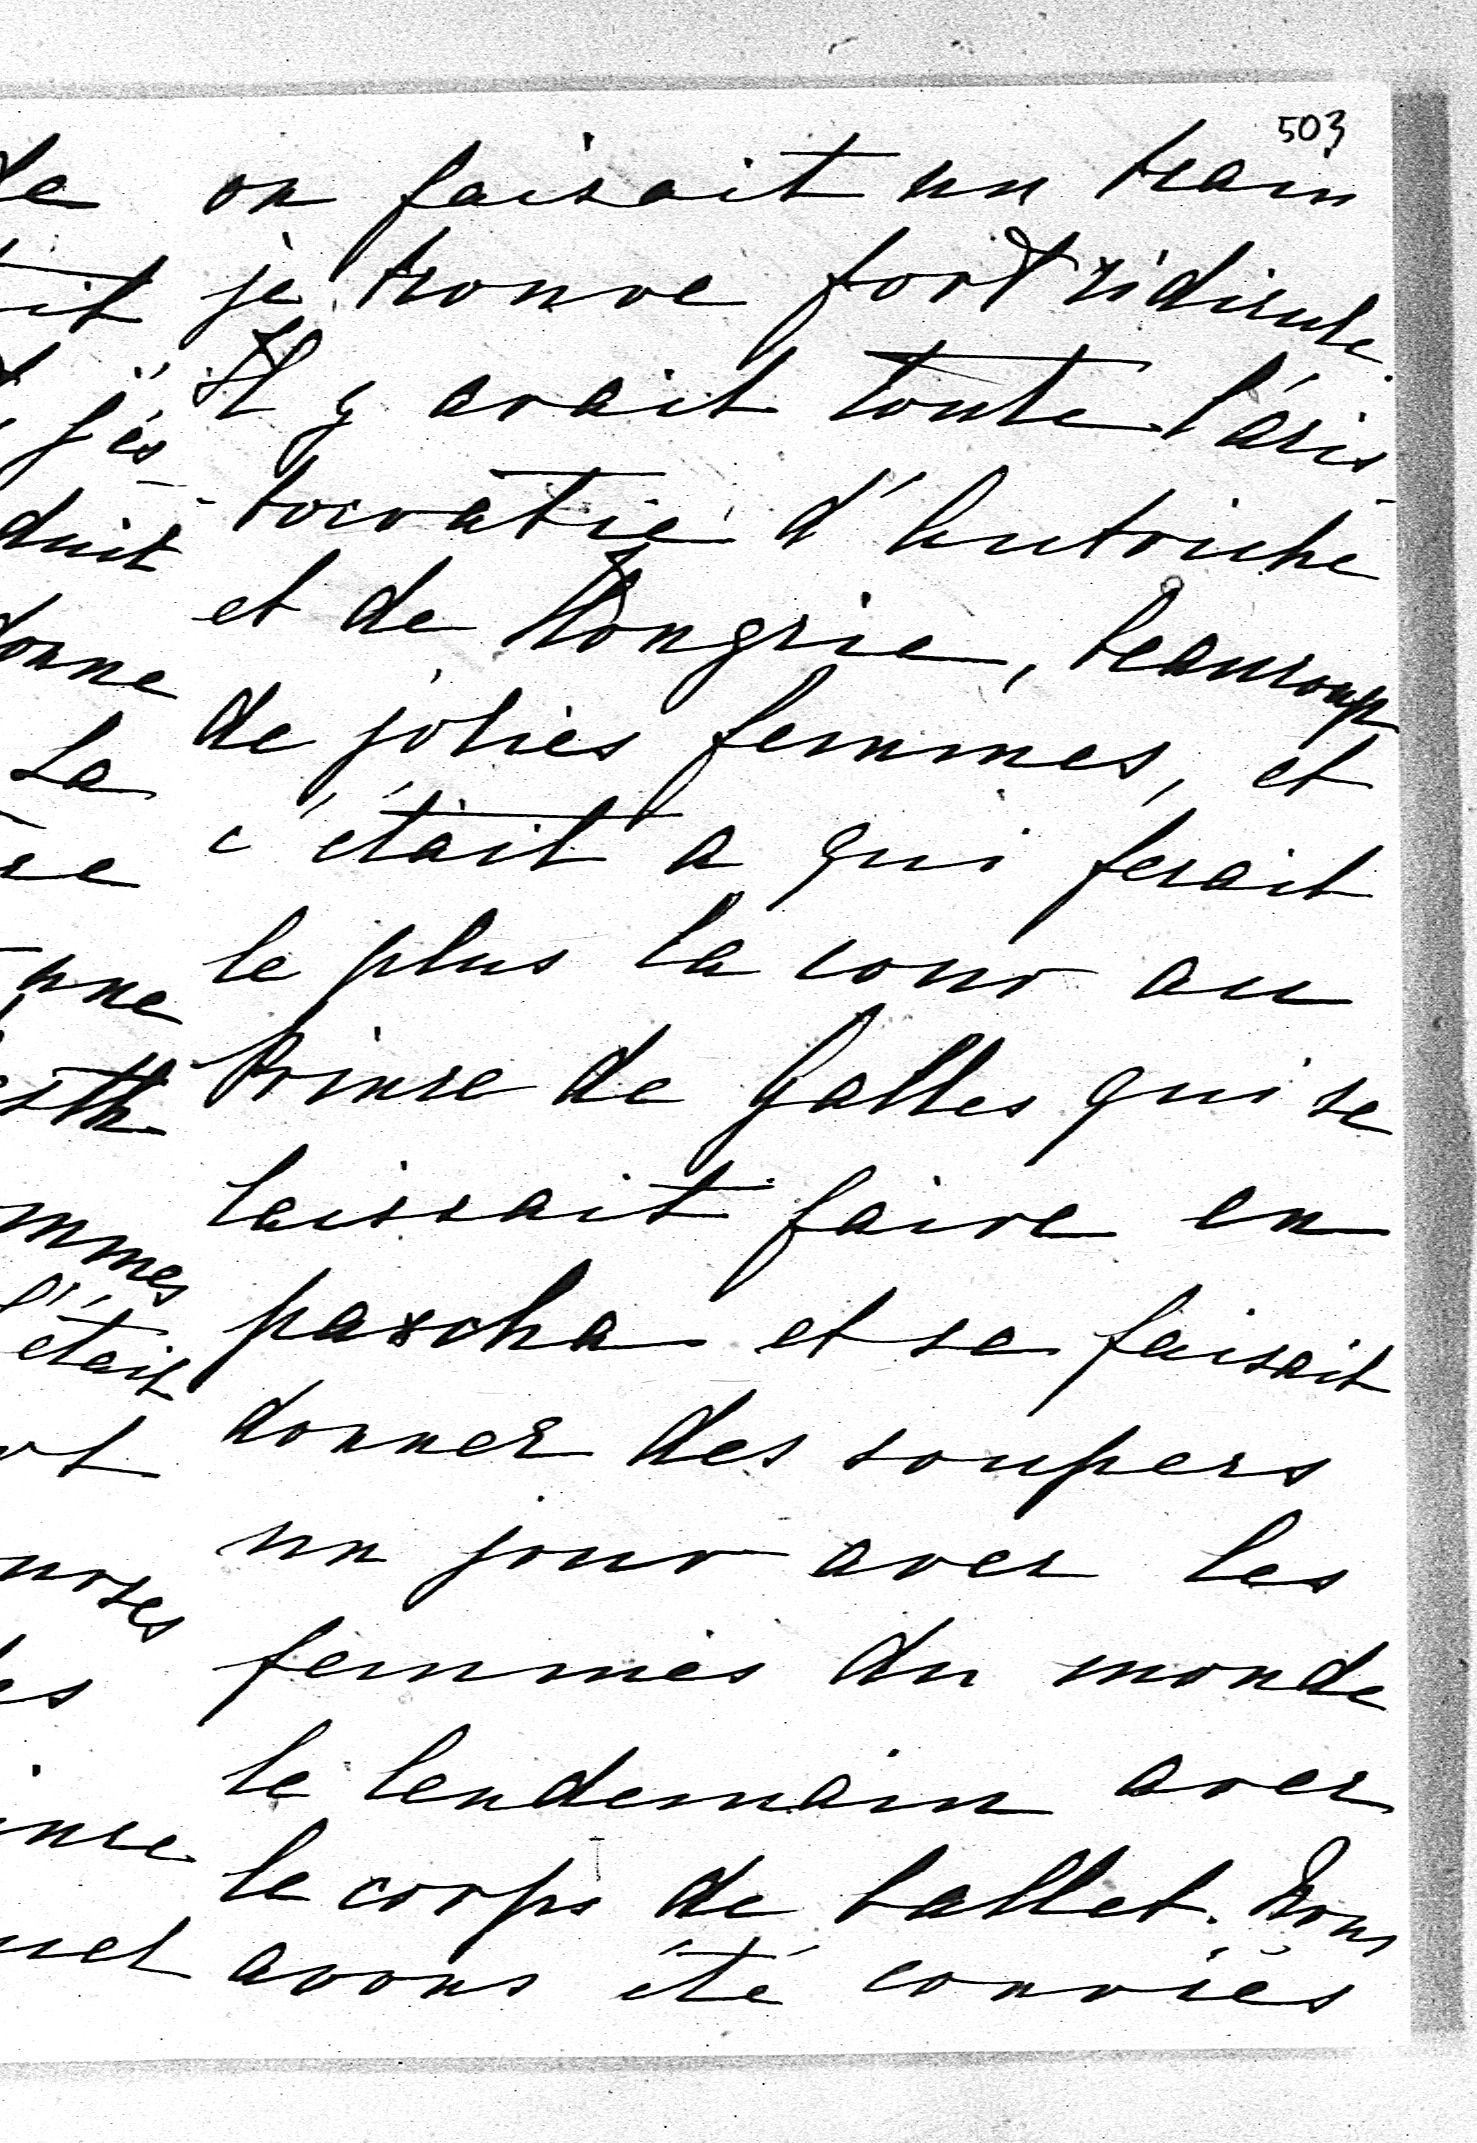 503
on faisait un train
je trouve fort ridicule.
Il y avait toute l'aris-
-tocratie d'Autriche
et de Hongrie, beaucoup
de jolies femmes, et
c'était a qui ferait
le plus la cour au
Prince de Galles qui se
laissait faire en
pascha et se faisait
donner des soupers
un jour avec les
femmes du monde
le lendemain avec
le corps de ballet. Nous
avons été conviés